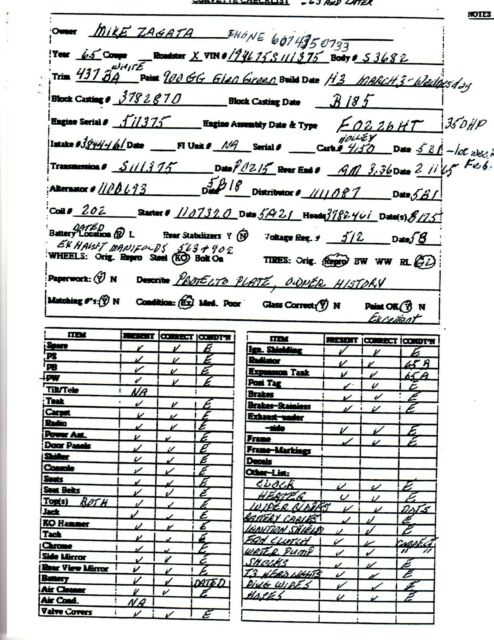 CORVETTE CHECKLIST - 63 AND LATER
NOTES
Owner MIKE ZAGATA PHONE 6074350733
Year 65 Coupe Roadster X VIN# 194675S111375 Body# S3682
WHITE
Trim 437BA Paint 900 GG Glen Green Build Date H3 MARCH 3-Wednesday
Block Casting # 3782870 Block Casting Date B185
Engine Serial # 511375 Engine Assembly Date & Type F0226HT 350HP
HOLLEY
Intake # 3844461 Date FI Unit # NA Serial # Carb.# 450 Date 521 -1st week Feb.
Transmission # S111375 Date P0215 Rear End # AM 3.36 Date 2 11 65
Alternator # 1100693 Date 5B18 Distributor # 1111087 Date 5B1
Coil # 202 Starter # 1107320 Date 5A21 Heads 3782461 Date(s) B175
DATED
Battery Location R L Rear Stabilizers Y N Voltage Reg. # 512 Date 5B
EXHAUST MANIFOLDS 563 + 902
WHEELS: Orig. Repro Steel KO Bolt On TIRES: Orig. Repro BW WW RL GL
Paperwork: Y N Describe PROTECTO PLATE, OWNER HISTORY
Matching #'s: Y N Condition: Ex Med. Poor Glass Correct: Y N Paint OK Y N
Excellent
ITEM PRESENT CORRECT CONDT'N
Spare ✓ ✓ E
PS ✓ ✓ E
PB ✓ ✓ E
PW ✓ ✓ E
Tilt/Tele NA
Teak ✓ ✓ E
Carpet ✓ ✓ E
Radio ✓ ✓ E
Power Ant. ✓ ✓ E
Door Panels ✓ ✓ E
Shifter ✓ ✓ E
Console ✓ ✓ E
Seats ✓ ✓ E
Seat Belts ✓ ✓ E
Top(s) BOTH ✓ ✓ E
Jack ✓ ✓ E
KO Hammer ✓ ✓ E
Tach ✓ ✓ E
Chrome ✓ ✓ E
Side Mirror ✓ ✓ E
Rear View Mirror ✓ ✓ E
Battery ✓ ✓ DATED
Air Cleaner ✓ ✓ E
Air Cond. NA
Valve Covers ✓ ✓ E
ITEM PRESENT CORRECT CONDT'N
Ign. Shielding ✓ ✓ E
Radiator ✓ ✓ 65A
Expansion Tank ✓ ✓ 65A
Posi Tag ✓ ✓ E
Brakes ✓ ✓ E
Brakes-Stainless ✓ ✓ E
Exhaust-under
-side ✓ ✓ E
Frame ✓ ✓ E
Frame-Markings
Decals
Other-List:
CLOCK ✓ ✓ E
HEATER ✓ ✓ E
WIPER BLADES ✓ ✓ DOTS
BATTERY CABLES ✓ ✓ E
IGNITION SHIELD ✓ ✓ E
FAN CLUTCH ✓ ✓ CORRECT
WATER PUMP ✓ ✓ " "
SHOCKS ✓ ✓ E
T3 HEADLIGHTS ✓ ✓ E
PLUG WIRES ✓ ✓ E
HOSES ✓ ✓ E